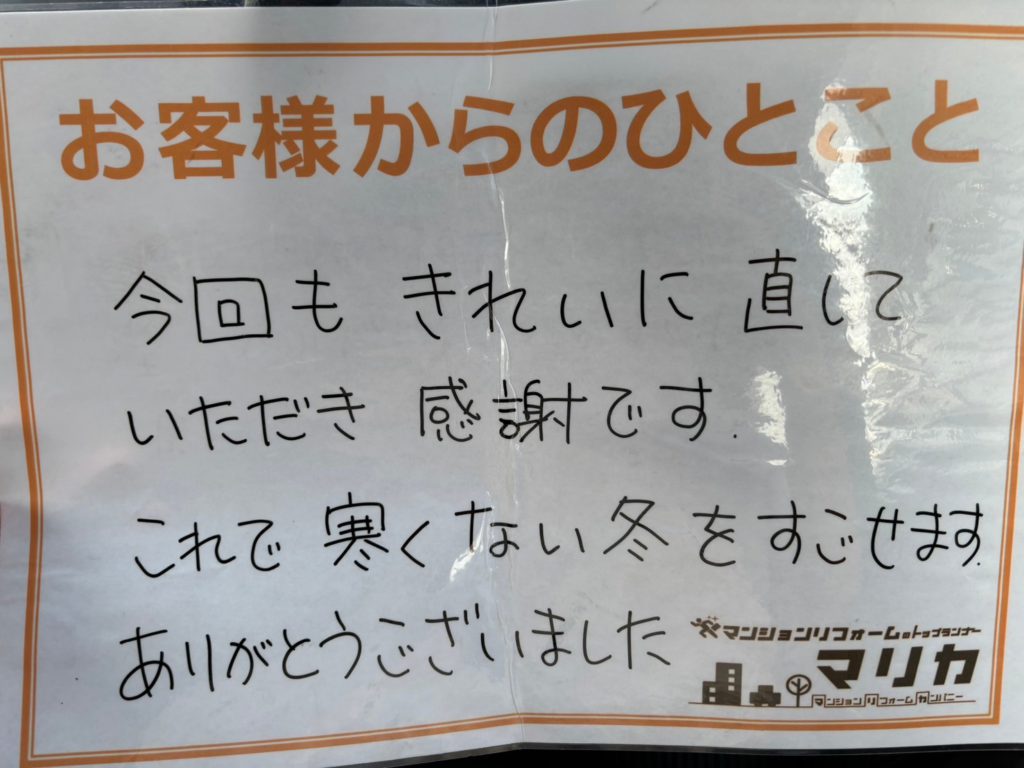 お客様からのひとこと
今回も きれいに 直して
いただき 感謝です.
これで 寒くない 冬を すごせます.
ありがとうございました
マンションリフォームのトップランナー
マリカ
マンションリフォームカンパニー